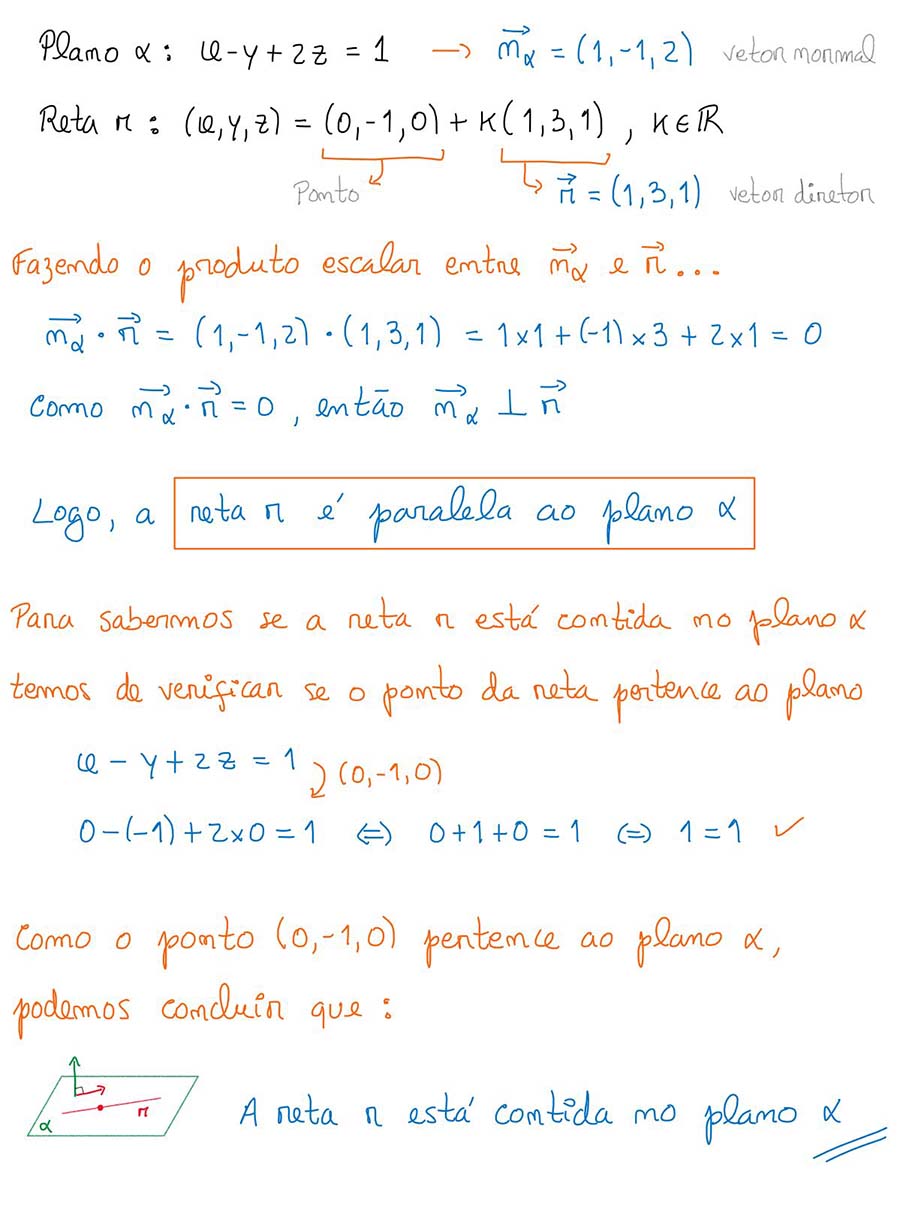 Plano α : x - y + 2z = 1 → n⃗α = (1, -1, 2) vetor normal
Reta r : (x, y, z) = (0, -1, 0) + K(1, 3, 1) , K ∈ ℝ
Ponto r⃗ = (1, 3, 1) vetor diretor
Fazendo o produto escalar entre n⃗α e r⃗ ...
n⃗α · r⃗ = (1, -1, 2) · (1, 3, 1) = 1×1 + (-1)×3 + 2×1 = 0
Como n⃗α · r⃗ = 0 , então n⃗α ⊥ r⃗
Logo, a reta r é paralela ao plano α
Para sabermos se a reta r está contida no plano α
temos de verificar se o ponto da reta pertence ao plano
x - y + 2z = 1 (0, -1, 0)
0 - (-1) + 2×0 = 1 ⇔ 0 + 1 + 0 = 1 ⇔ 1 = 1 ✓
Como o ponto (0, -1, 0) pertence ao plano α,
podemos concluir que :
α r A reta r está contida no plano α